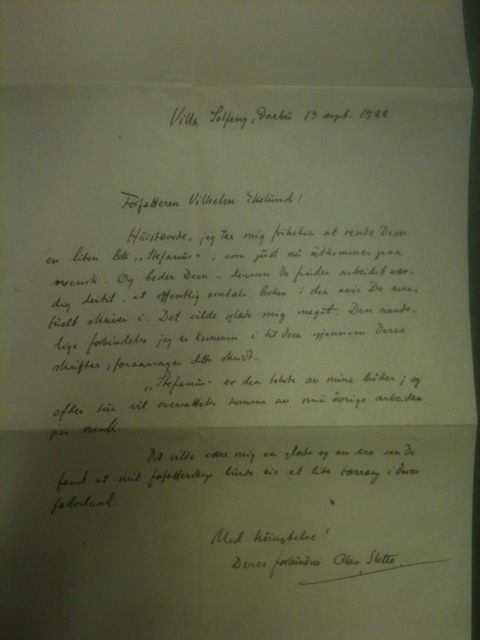 Villa Solfeng, Darbu 13 sept. 1922
Forfatteren Vilhelm Ekelund!
Høistærede, jeg tar mig friheten at sende Dem
en liten bok, "Stefanus", som just nu utkommer paa
svensk. Og beder Dem - dersom De finder arbeidet vær-
dig dertil, at offentlig omtale boken i den avis De even-
tuelt skriver i. Det vilde glæde mig meget. Den aande-
lige forbindelse jeg er kommen i til Dem gjennem Deres
skrifter, foraarsager dette skridt.
"Stefanus" er den første av mine bøker; og
efter tur vil oversættelse komme av mine øvrige arbeider
paa svensk.
Det vilde være mig en glæde og en ære om De
fandt at mit forfatterskap burde eie et lite in Deres
fædreland.
Med høiagtelse!
Deres forbundne Olav Sletto.